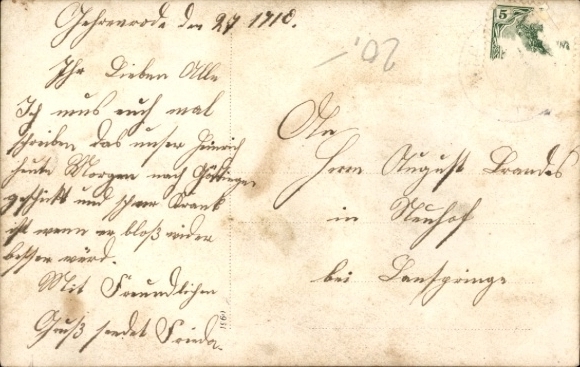 Gehrenrode den 27 1918.
Ihr Lieben Alle
Ich mus euch mal
schreiben das unser Heinrich
heute Morgen nach Göttingen
geschickt und schwer Krank
ist wenn er bloß wider
besser würd.
Mit Freundlichen
Gruß sendet Frieda.
An
Herrn August Brandes
in Neuhof
bei Lamspringe
5